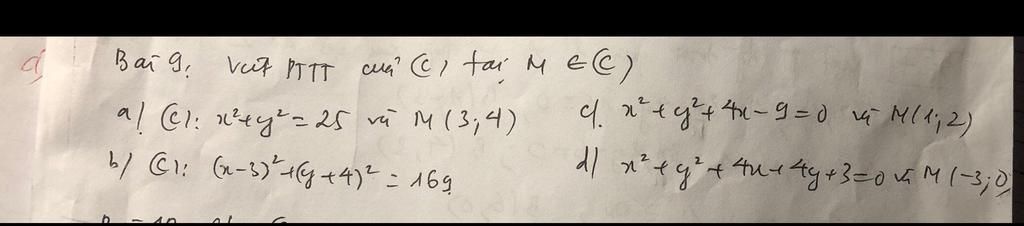 Bài 9: Viết PTTT của (C) tại M ∈ (C)
a) (C): x²+y² = 25 và M(3;4)
c). x²+y²+4x-9=0 và M(1;2)
b) (C): (x-3)²+(y+4)² = 169
d) x²+y²+4x+4y+3=0 và M(-3;0)